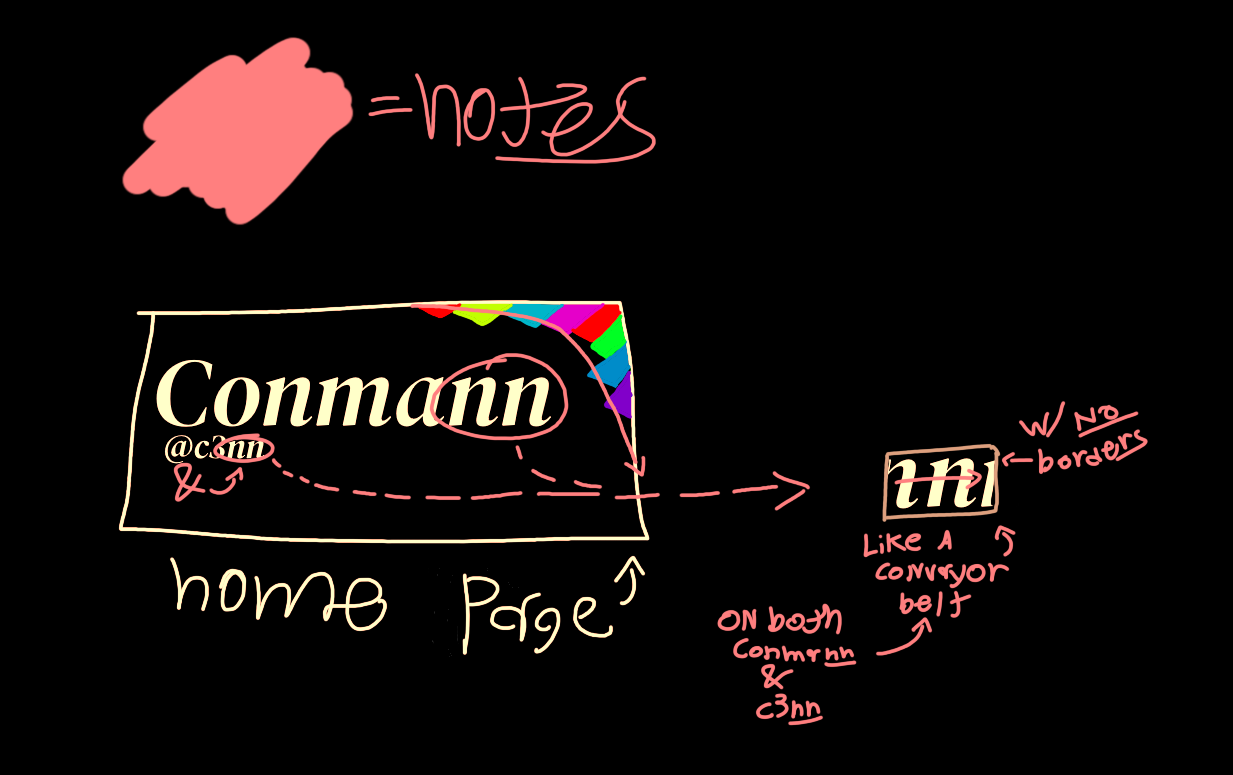 =notes
Conmann
@c3nn
&
home page
nnn
w/ No
borders
Like A
conveyor
belt
ON both
Conmann
&
c3nn